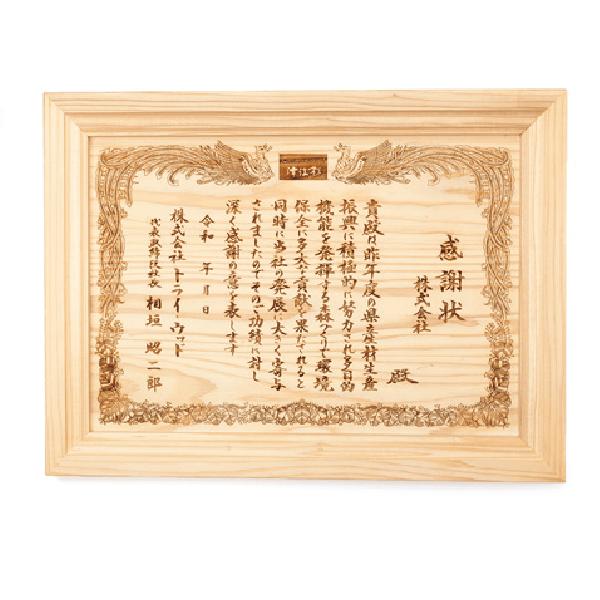 感謝状
株式会社
殿
貴殿は昨年度の県産材生産
振興に積極的に努力され多目的
機能を発揮する森づくりで環境
保全に多大な貢献を果たされると
同時に当社の発展に大きく寄与
されましたのでその功績に対し
深く感謝の意を表します
令和 年 月 日
株式会社トライ・ウッド
代表取締役社長 相垣 昭二郎